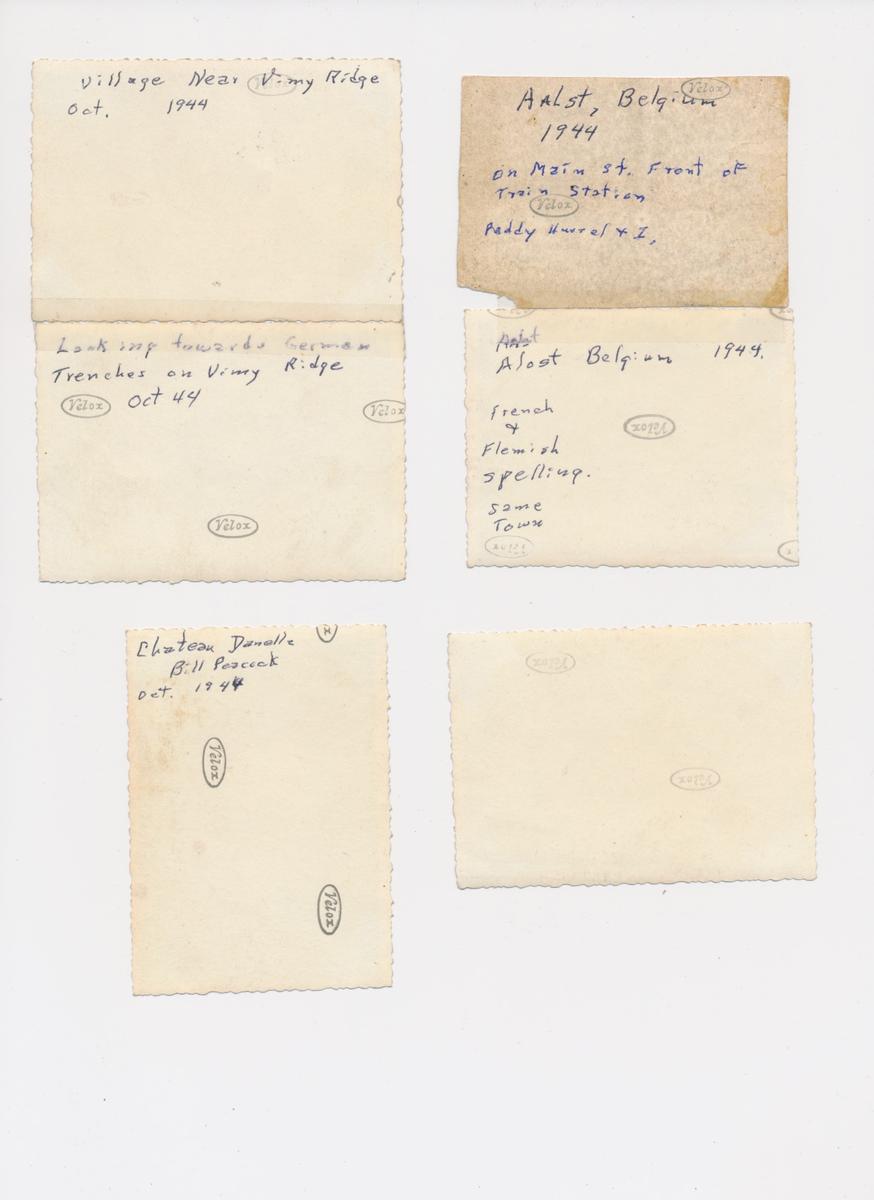 Village Near Vimy Ridge
Oct. 1944
Velox
Looking towards German
Trenches on Vimy Ridge
Oct 44
Velox
Velox
Velox
Aalst, Belgium
1944
on Main st. Front of
Train Station
Paddy Hurrel & I,
Velox
Velox
Aalst
Alost Belgium 1944.
French
&
Flemish
spelling.
Same
Town
Velox
Velox
Chateau
Bill Peacock
Oct. 1944
Velox
Velox
Velox
Velox